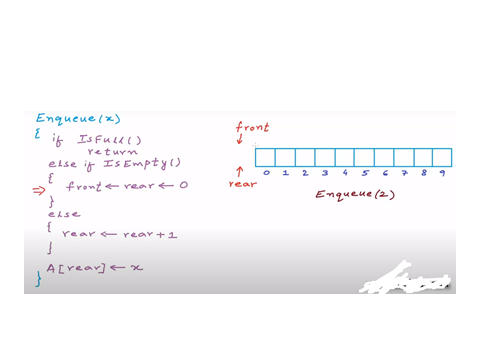 Enqueue(x)
{
if IsFull()
return
else if IsEmpty()
{
front ← rear ← 0
}
else
{
rear ← rear + 1
}
A[rear] ← x
}
front
rear
0 1 2 3 4 5 6 7 8 9
Enqueue(2)